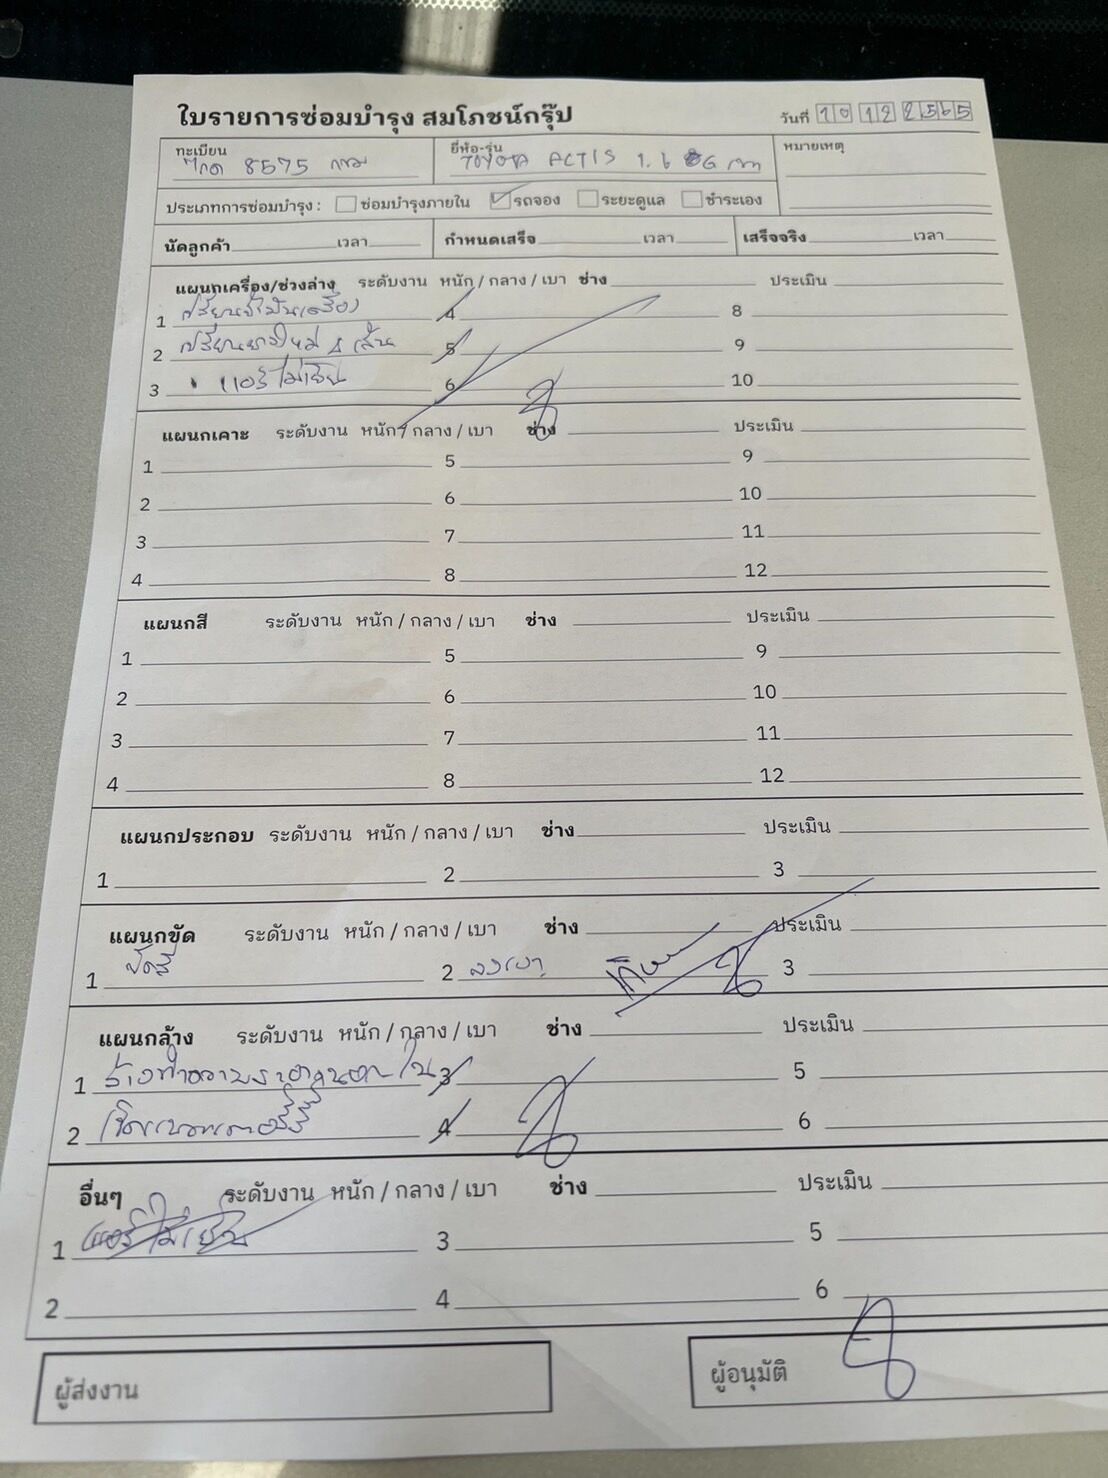 ใบรายการซ่อมบำรุง สมโภชน์กรุ๊ป วันที่ 10 12 2565
ทะเบียน 8575 กทม ยี่ห้อ-รุ่น TOYOTA ALTIS 1.6 G หมายเหตุ
ประเภทการซ่อมบำรุง : ซ่อมบำรุงภายใน รถจอง ระยะดูแล ชำระเอง
นัดลูกค้า เวลา กำหนดเสร็จ เวลา เสร็จจริง เวลา
แผนกเครื่อง/ช่วงล่าง ระดับงาน หนัก / กลาง / เบา ช่าง ประเมิน
1 เปลี่ยนน้ำมันเครื่อง 4 8
2 เปลี่ยนยางใหม่ 4 เส้น 5 9
3 แอร์ไม่เย็น 6 10
แผนกเคาะ ระดับงาน หนัก / กลาง / เบา ช่าง ประเมิน
1 5 9
2 6 10
3 7 11
4 8 12
แผนกสี ระดับงาน หนัก / กลาง / เบา ช่าง ประเมิน
1 5 9
2 6 10
3 7 11
4 8 12
แผนกประกอบ ระดับงาน หนัก / กลาง / เบา ช่าง ประเมิน
1 2 3
แผนกขัด ระดับงาน หนัก / กลาง / เบา ช่าง ประเมิน
1 ขัดสี 2 ลงเงา 3
แผนกล้าง ระดับงาน หนัก / กลาง / เบา ช่าง ประเมิน
1 ล้างทำความสะอาดนอก ใน 3 5
2 เช็คแบตเตอรี่ 4 6
อื่นๆ ระดับงาน หนัก / กลาง / เบา ช่าง ประเมิน
1 แอร์ไม่เย็น 3 5
2 4 6
ผู้ส่งงาน ผู้อนุมัติ